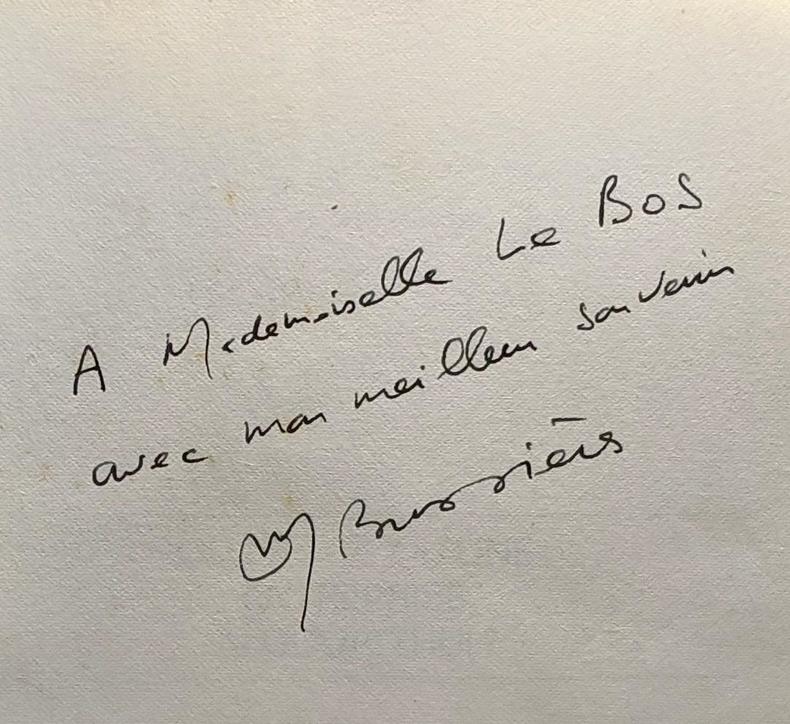 A Mademoiselle Le Bos
avec mon meilleur souvenir
Bussière